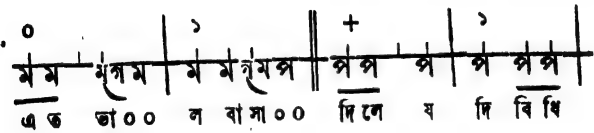 ০ ১ + ১
ম ম ম্গ ম ম ম গ্ম প প প প প প প
এ ত ভা ০ ০ ন বা সা ০ ০ দি লে য দি বি ধি